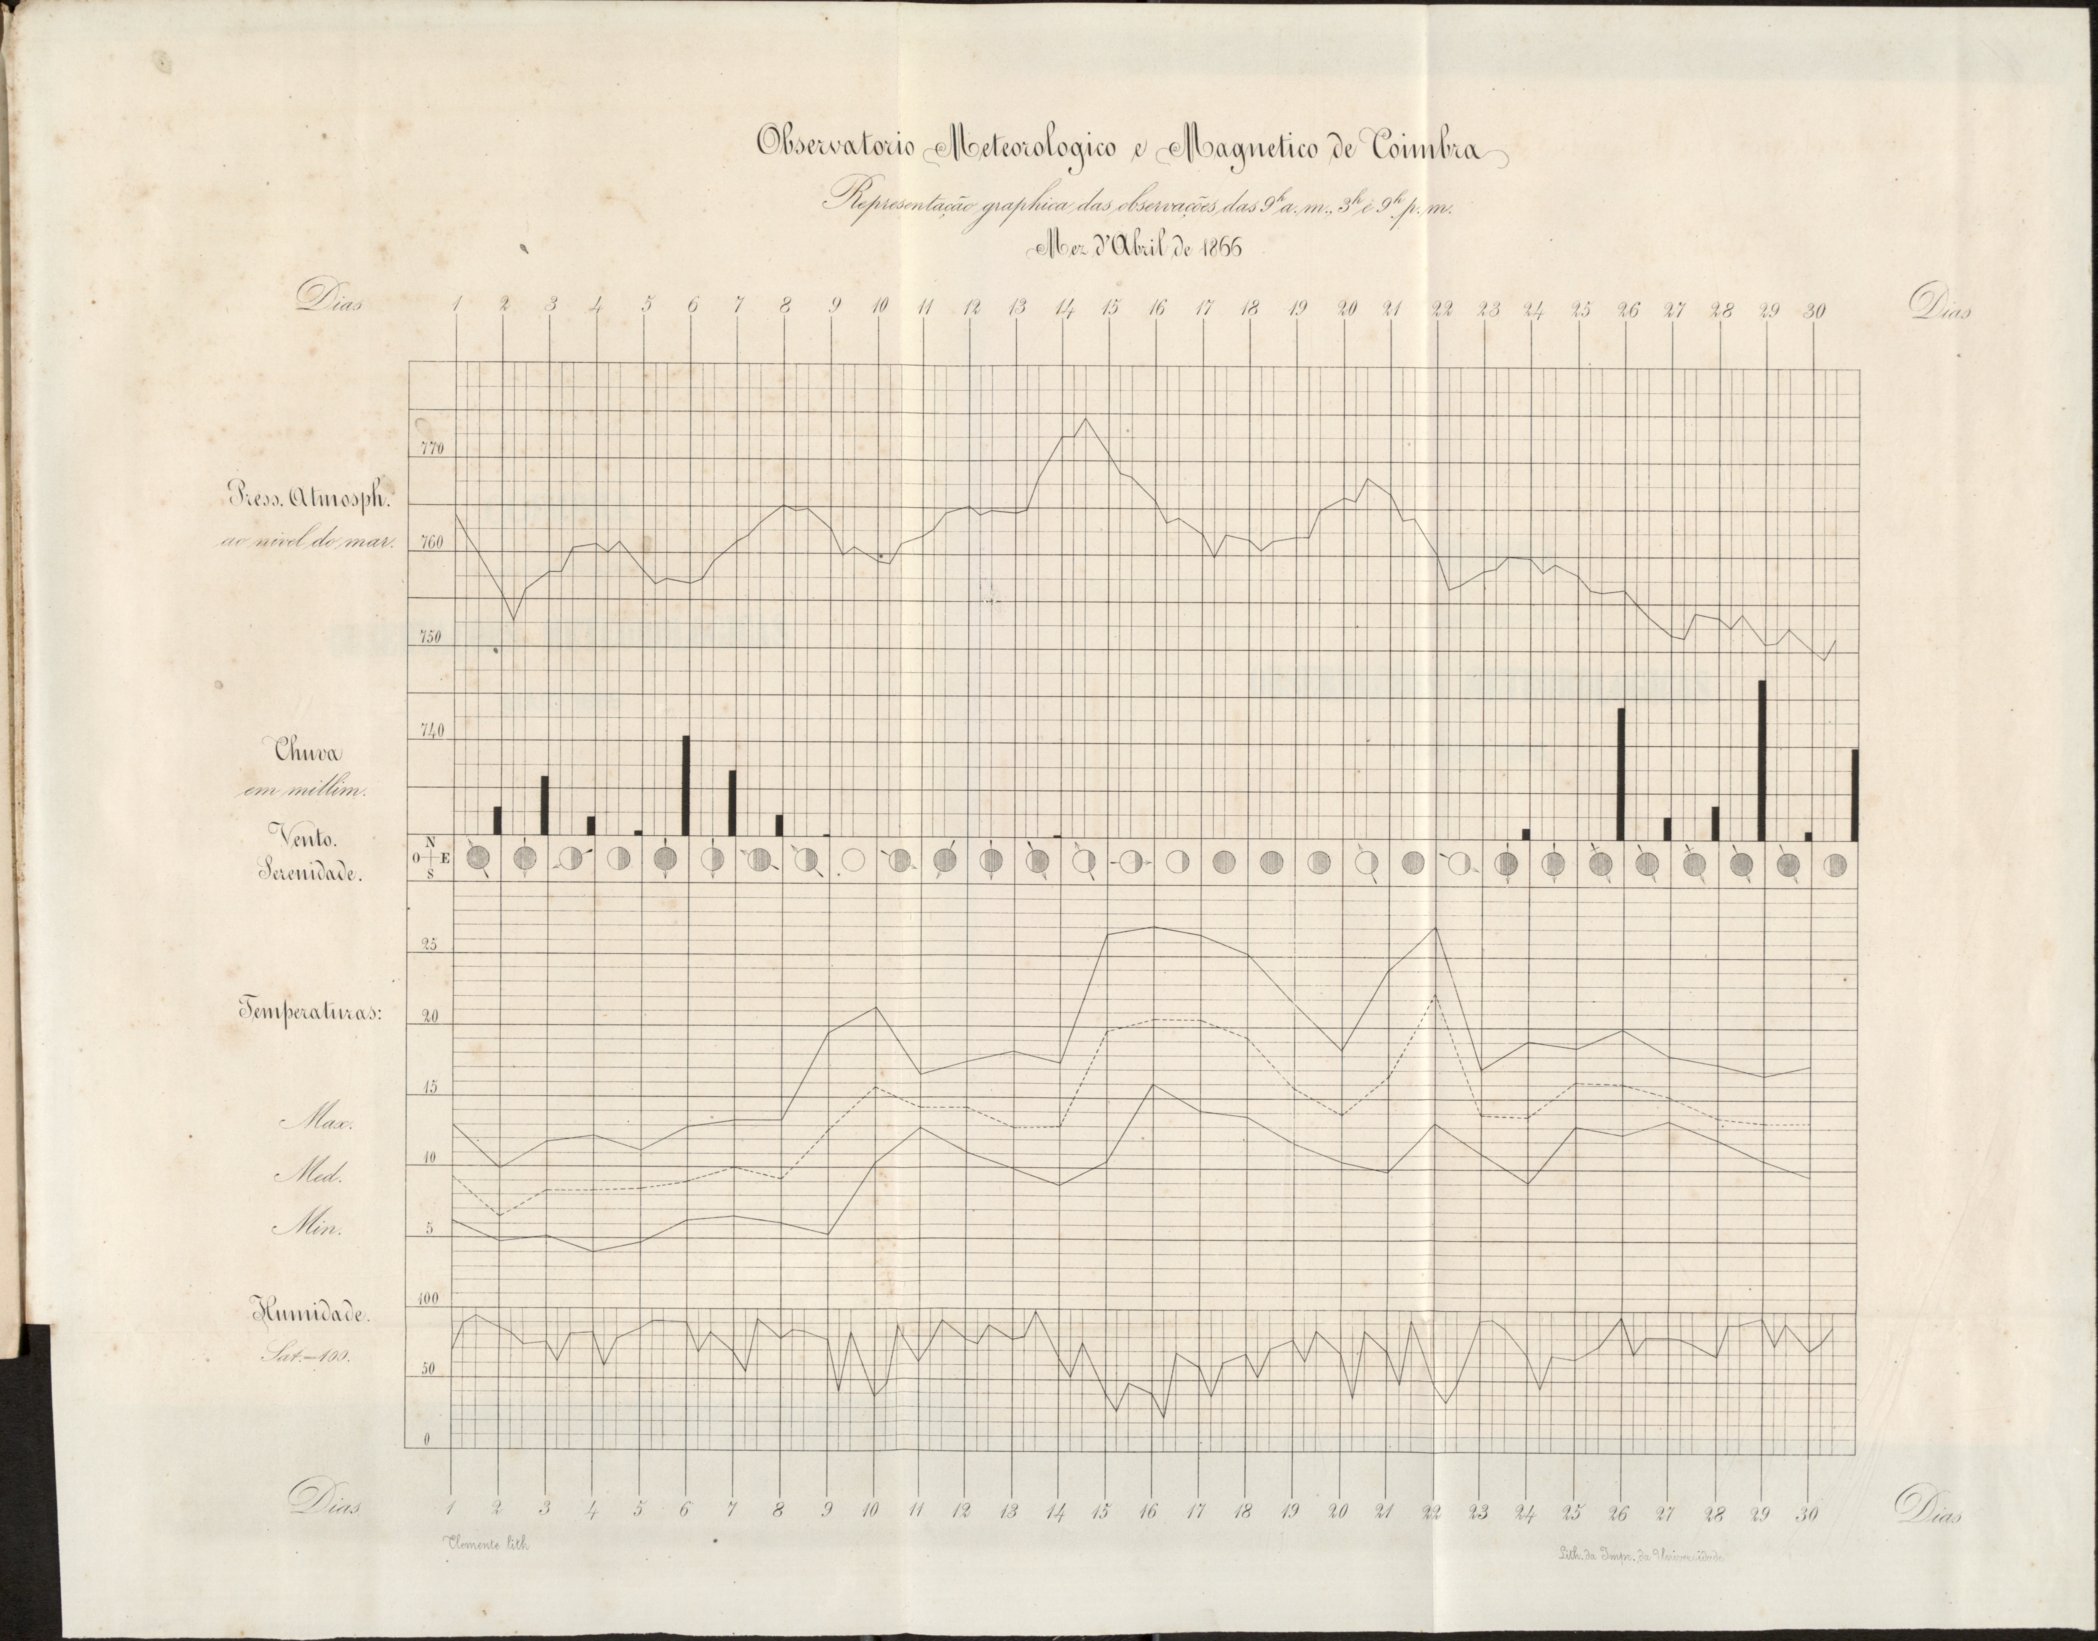 Observatorio Meteorologico e Magnetico de Coimbra
Representação graphica das observações das 9h a. m., 3h e 9h p. m.
Mez d'Abril de 1866
Dias 1 2 3 4 5 6 7 8 9 10 11 12 13 14 15 16 17 18 19 20 21 22 23 24 25 26 27 28 29 30 Dias
770
Press. Atmosph.
ao nivel do mar. 760
750
740
Chuva
em millim.
Vento. N
O E
Serenidade. S
25
Temperaturas: 20
15
Max.
10
Med.
Min. 5
100
Humidade.
Sat.=100. 50
0
Dias 1 2 3 4 5 6 7 8 9 10 11 12 13 14 15 16 17 18 19 20 21 22 23 24 25 26 27 28 29 30 Dias
Clemente lith
Lith. da Impr. da Universidade